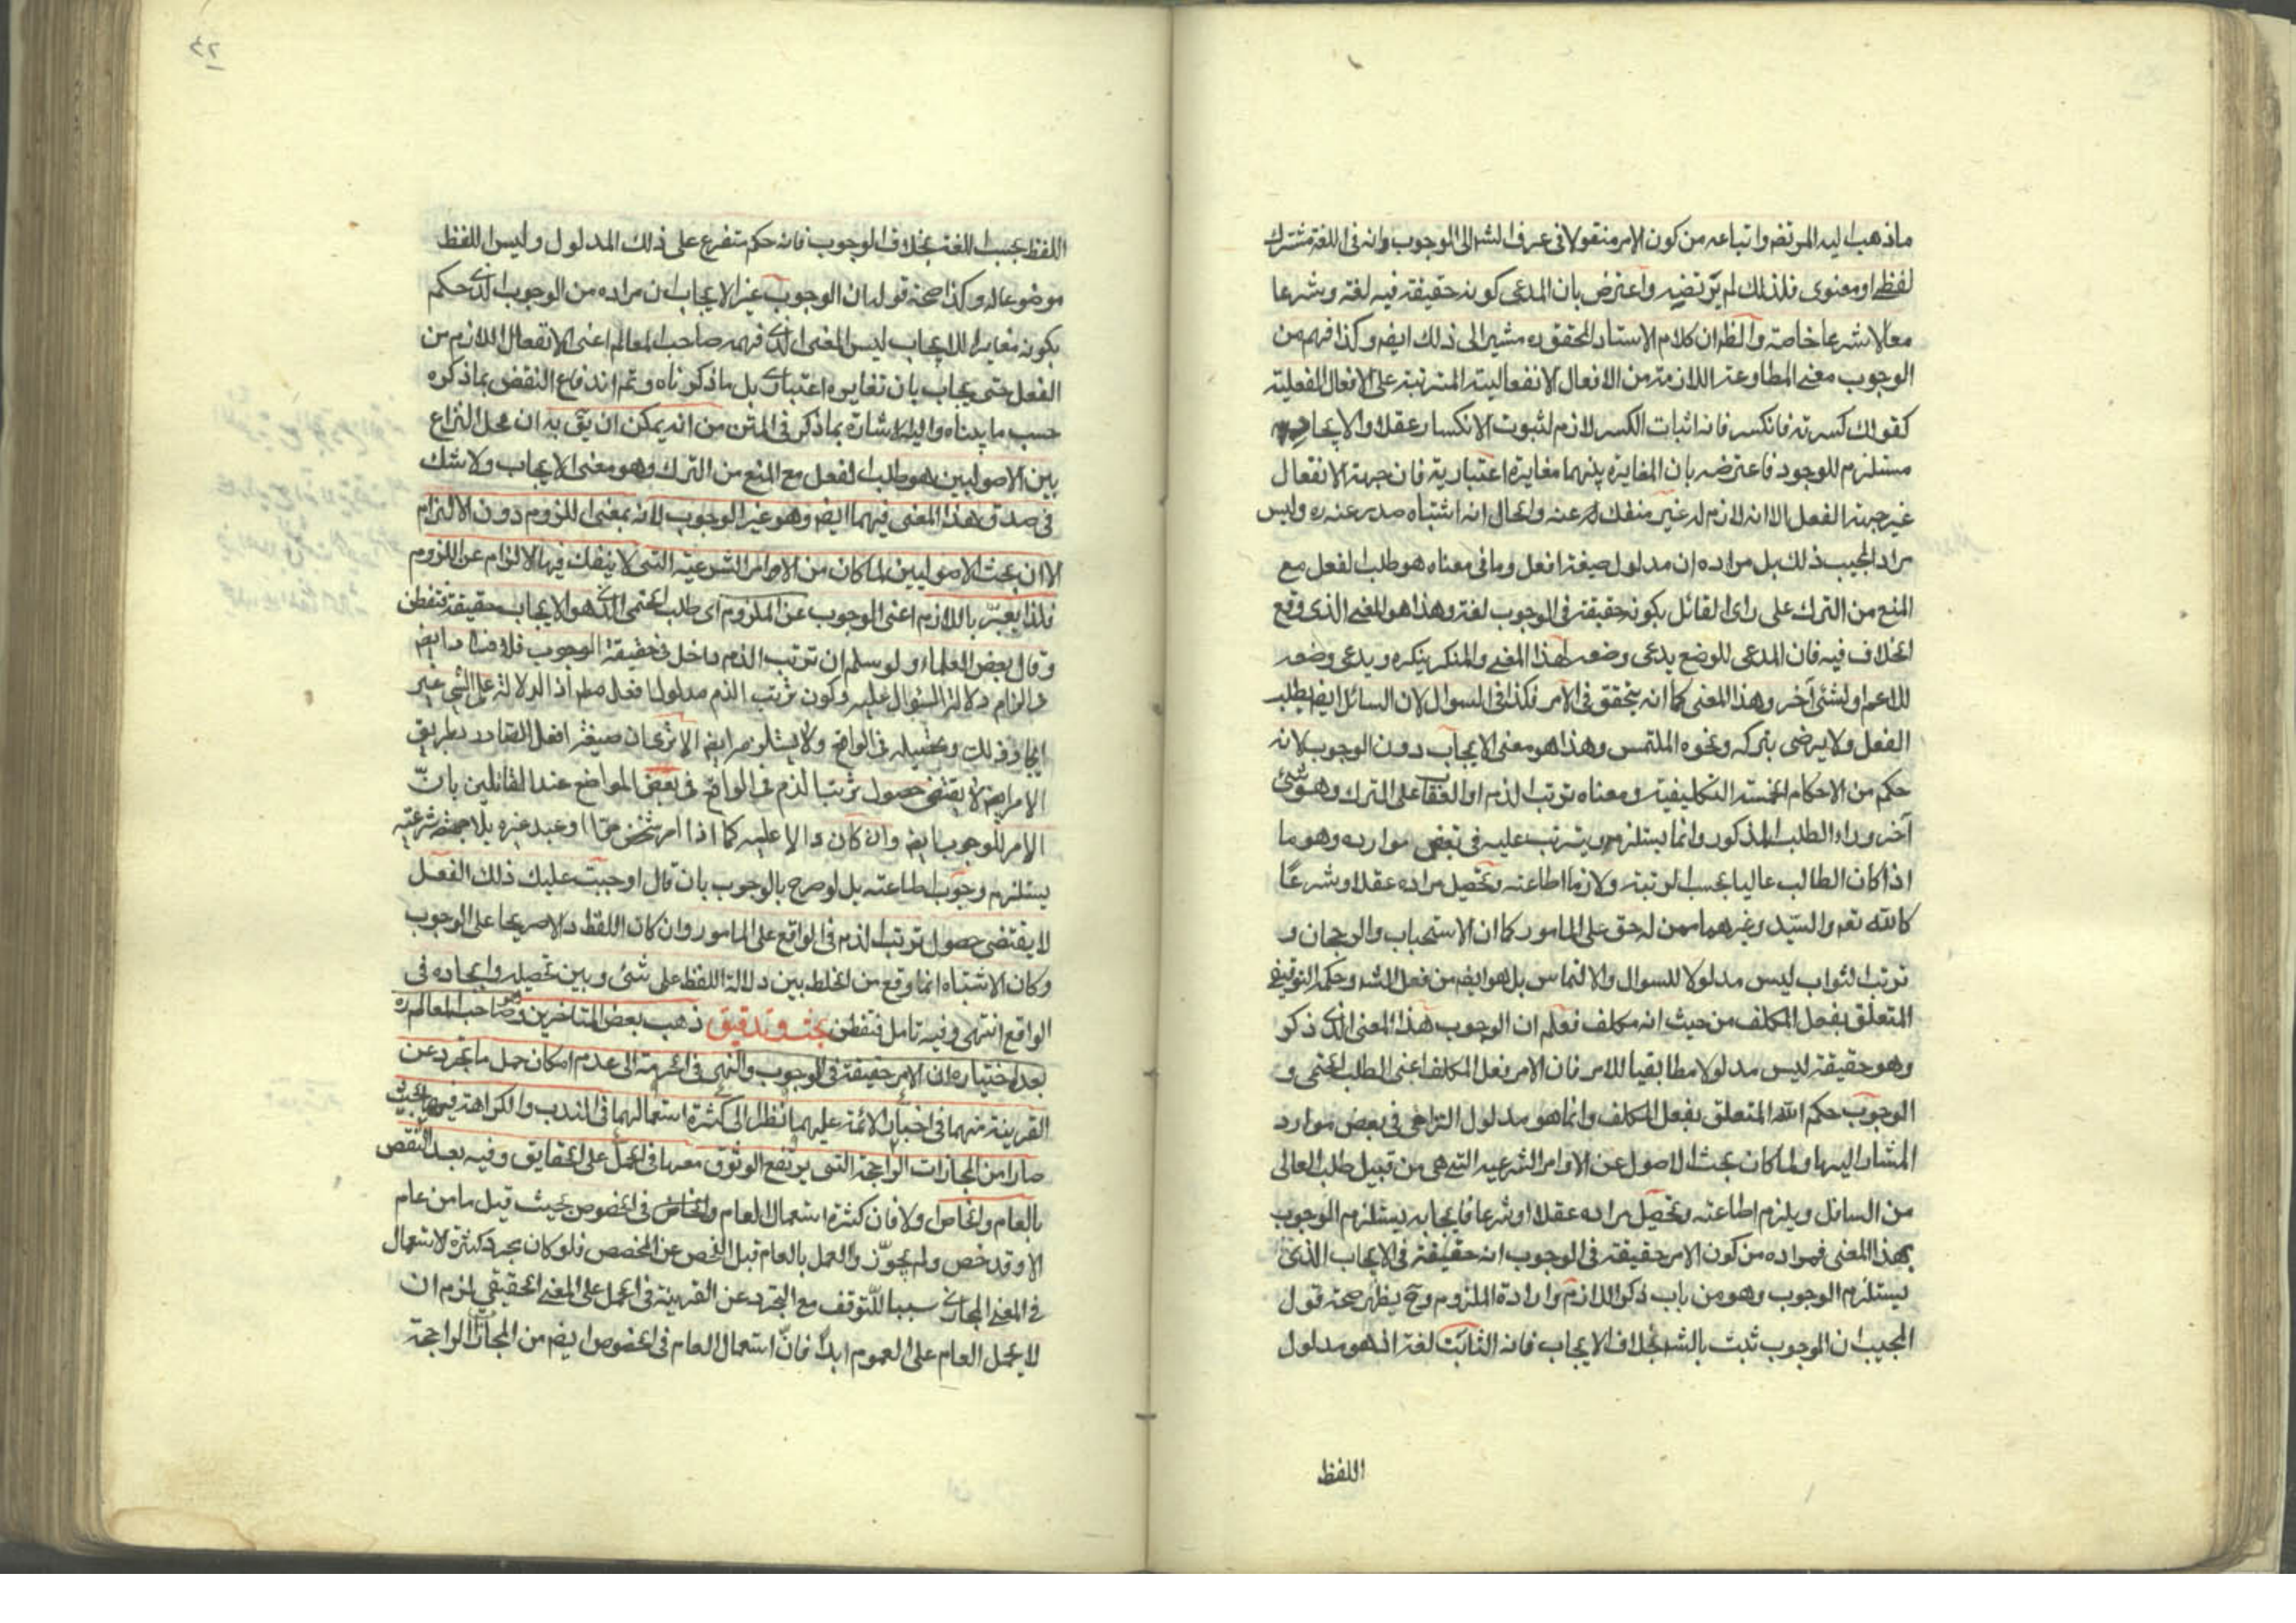 ماذهب اليه المرتضى واتباعه من كون الامر منقولا فى عرف الشر الى الوجوب وانه فى اللغة مشترك
لفظى او معنوى فلذلك لم يرتضيه واعترض بان المدعى كونه حقيقة فيه لغة وشرعا
معا لا شرعا خاصة والظ ان كلام الاستاد المحقق ره مشير الى ذلك ايضا وكذا فهم من
الوجوب معنى المطاوعة اللازمة من الافعال الانفعالية المترتبة على الافعال الفعلية
كقولك كسرته فانكسر فان اثبات الكسر لازم لثبوت الانكسار عقلا والايجاد
مستلزم للوجود فاعترضه بان المغايرة بينهما مغايرة اعتبارية فان جهة الانفعال
غير جهة الفعل الا انه لازم له غير منفك عنه والحال انه اشتباه صدر عنه ره وليس
مراد المجيب ذلك بل مراده ان مدلول صيغة افعل وما فى معناه هو طلب الفعل مع
المنع من الترك على راى القائل بكونه حقيقة فى الوجوب لغة وهذا هو المعنى الذى وقع
الخلاف فيه فان المدعى للوضع يدعى وضعه لهذا المعنى والمنكر ينكره ويدعى وضعه
للاعم او لشئ آخر وهذا المعنى كما انه يتحقق فى الامر فكذا فى السوال لان السائل ايضا يطلب
الفعل ولا يرضى بتركه ونحوه الملتمس وهذا هو معنى الايجاب دون الوجوب لانه
حكم من الاحكام الخمسة التكليفية ومعناه ترتب الذم او العقاب على الترك وهو شئ
آخر وراء الطلب المذكور وانما يستلزمه ويترتب عليه فى بعض موارده وهو ما
اذا كان الطالب عاليا بحسب الرتبة ولازما اطاعته وتحصيل مراده عقلا وشرعًا
كالله تعه والسّيد وغيرهما ممن له حق على المامور كما ان الاستحباب والرجحان و
ترتب الثواب ليس مدلولا للسوال والالتماس بل هو ايضا من فعل الشر وحكمه التوقيفى
المتعلق بفعل المكلف من حيث انه مكلف فعلم ان الوجوب هذا المعنى الذى ذكر
وهو حقيقة ليس مدلولا مطابقيا للامر فان الامر فعل المكلف اعنى الطلب الحتمى و
الوجوب حكم الله المتعلق بفعل المكلف وانما هو مدلول التزامى فى بعض موارد
المشار اليها ولما كان بحث الاصول عن الاوامر الشرعيه التى هى من قبيل طلب العالى
من السافل ويلزم اطاعته وتحصيل مراده عقلا او شرعا فايجابه يستلزم الوجوب
بهذا المعنى فمراده من كون الامر حقيقة فى الوجوب انه حقيقة فى الايجاب الذى
يستلزم الوجوب وهو من باب ذكر اللازم وارادة الملزوم وح يظهر صحة قول
المجيب ان الوجوب ثبت بالشر بخلاف الايجاب فانه الثابت لغة اذ هو مدلول
اللفظ
٤٢
اللفظ بحسب اللغة بخلاف الوجوب فانه حكم متفرع على ذلك المدلول وليس اللفظ
موضوعا له وكذا صحة قوله ان الوجوب غير الايجاب ان مراده من الوجوب الذى حكم
بكونه مغايرا للايجاب ليس المعنى الذى فهمه صاحب المعالم اعنى الانفعال اللازم من
الفعل حتى يجاب بان تغايره اعتبارى بل ماذكرناه وتم اندفاع النقض بماذكره
حسب ما بيناه واليه الاشارة بما ذكر فى المتن من انه يمكن ان يق به ان محل النزاع
بين الاصوليين هو طلب الفعل مع المنع من الترك وهو معنى الايجاب ولا شك
فى صدق هذا المعنى فيهما ايضا وهو غير الوجوب لانه بمعنى اللزوم دون الالزام
الا ان بحث الاصوليين لما كان من الاوامر الشرعية التى لا ينفك فيها الالزام عن اللزوم
فلذا يعبّر باللازم اعنى الوجوب عن الملزوم اى طلب الحتمى الذى هو الايجاب حقيقة فتفطن
وقال بعض العلماء ولو سلم ان ترتب الذم داخل فى حقيقة الوجوب فلا
دلالة السؤال عليه وكون ترتب الذم مدلول افعل مطلقا اذ الدلالة على الشئ غير
ايجاده ذلك وتحصيله فى الواقع ولا يستلزمه ايضا الا ترى ان صيغة افعل الصادر بطريق
الامر ايضا لا يقتضى حصول ترتب الذم فى الواقع فى بعض المواضع عند القائلين بانّ
الامر للوجوب ايضا وان كان دالا عليه كما اذا امر شخص او عبد غيره بلا جهة شرعية
يستلزم وجوب اطاعته بل لو صرح بالوجوب بان قال اوجبت عليك ذلك الفعل
لا يقتضى حصول ترتب الذم فى الواقع على المامور وان كان اللفظ دالا صريحا على الوجوب
وكان الاشتباه انما وقع من الخلط بين دلالة اللفظ على شئ وبين تحصيله وايجاده فى
الواقع انتهى وفيه تامل فتفطن بحث و تدقيق ذهب بعض المتاخرين وهو صاحب المعالم ره
بعد اختياره ان الامر حقيقة فى الوجوب والنهى فى الحرمة الى عدم امكان حمل ما تجرد عن
القرينة منهما فى اخبار الائمة عليهم بانظر الى كثرة استعمالهما فى الندب والكراهة فيهما بحيث
صارا من المجازات الراجحة التى يرتفع الوثوق معها فى الحمل على الحقايق وفيه بعد النقص
بالعام والخاص اولا فان كثرة استعمال العام والخاص فى الخصوص بحيث قيل ما من عام
الا وقد خص ولم يجوّز والعمل بالعام قبل الفحص عن المخصص فلو كان مجرد كثرة الاستعمال
فى المعنى المجازى سببا للتوقف مع التجرد عن القرينة فى الحمل على المعنى الحقيقي لزم ان
لا يحمل العام على العموم ابدًا فانّ استعمال العام فى الخصوص ايضا من المجازات الراجحة